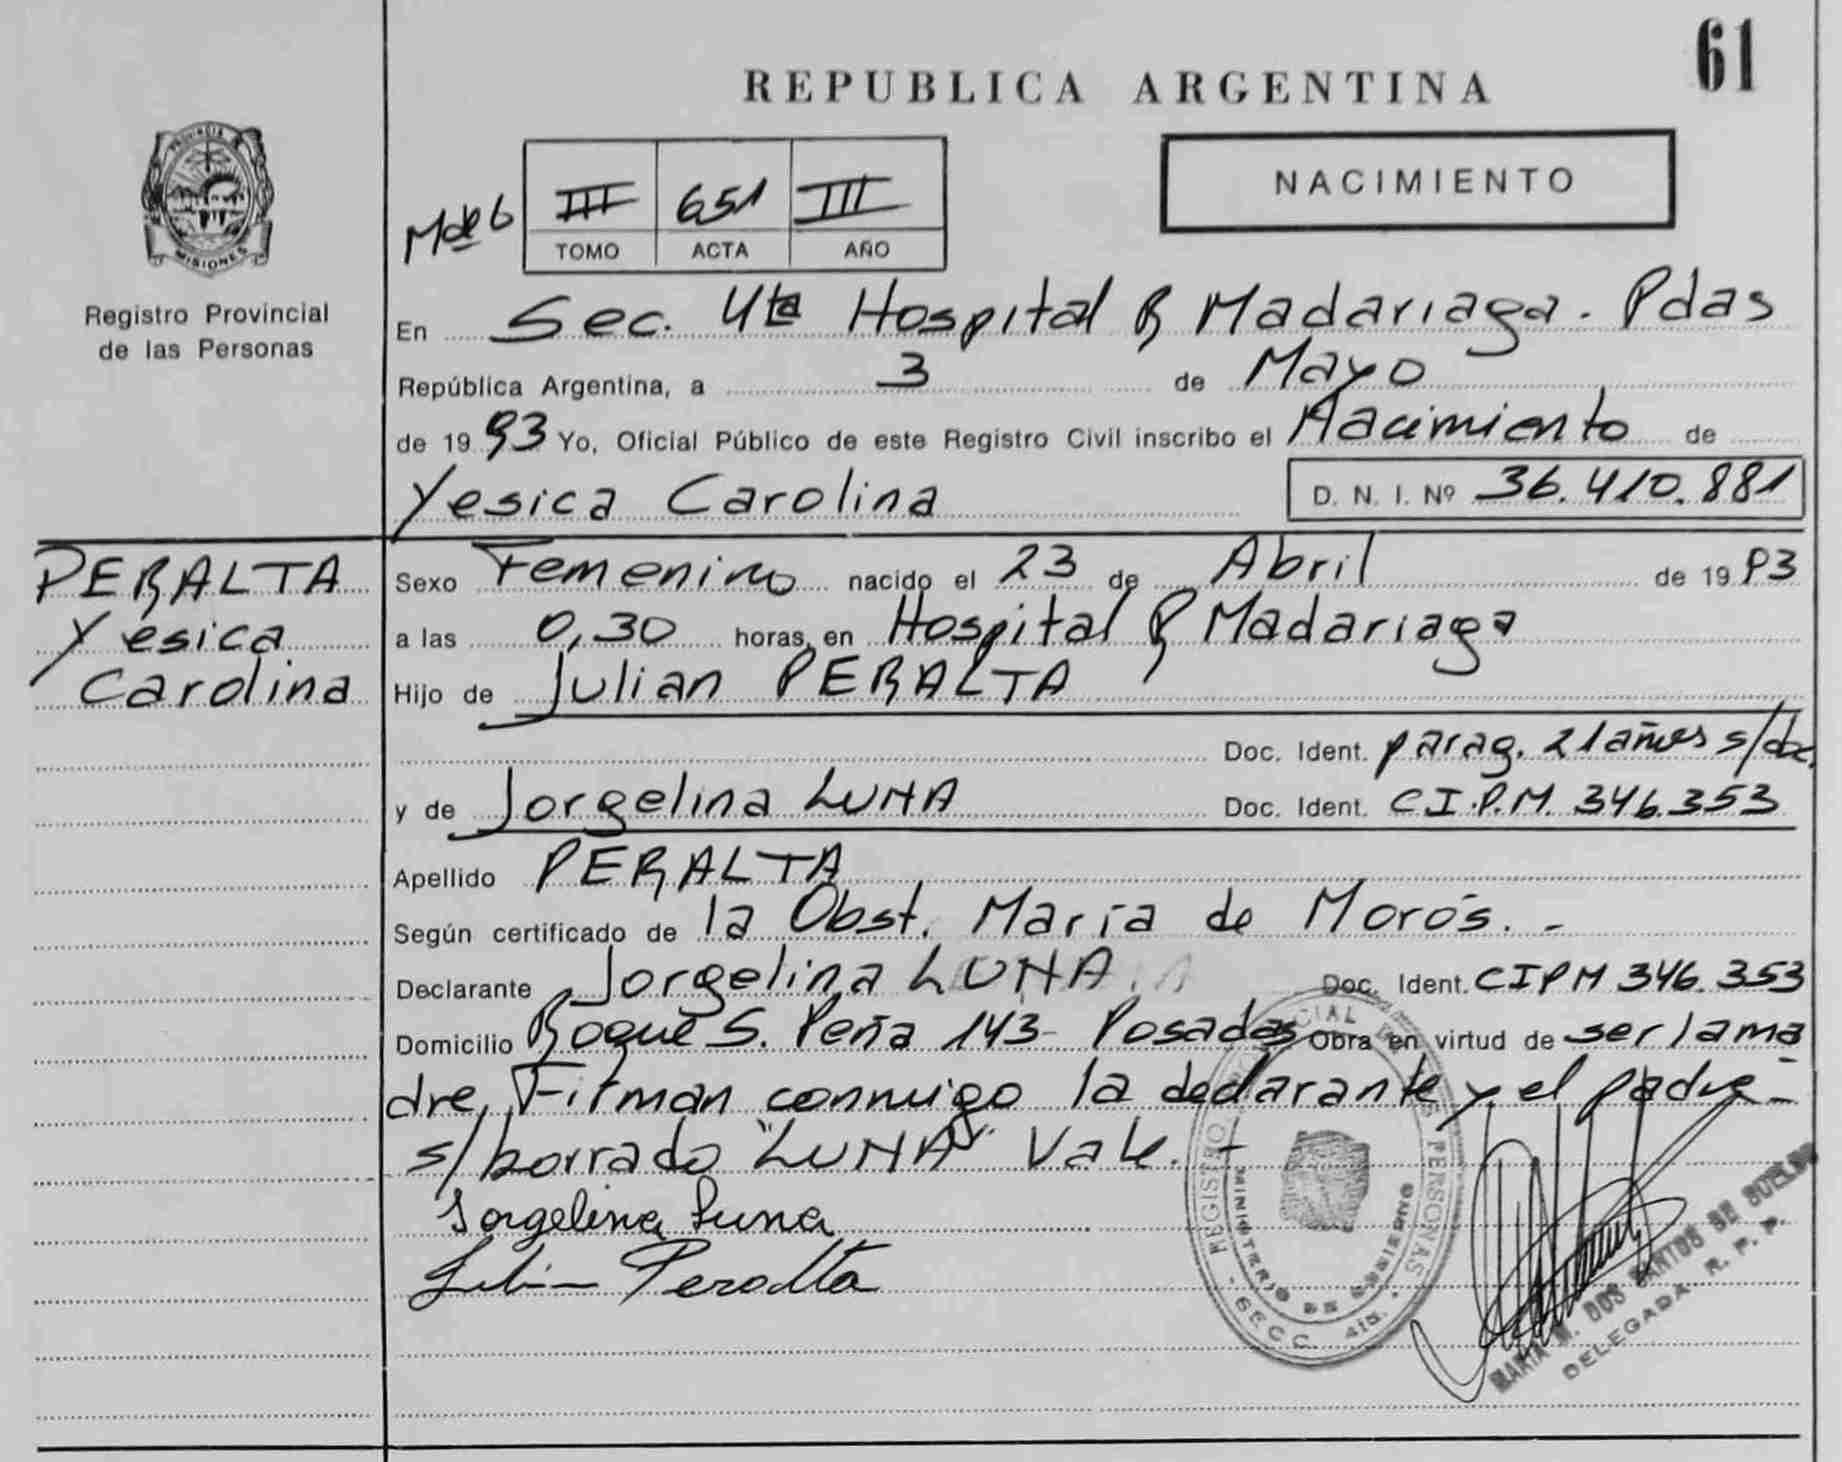 61
REPUBLICA ARGENTINA
PROVINCIA DE
MISIONES
Registro Provincial
de las Personas
NACIMIENTO
III 651 III
TOMO ACTA AÑO
En Sec. 4ta Hospital R Madariaga. Pdas
República Argentina, a 3 de Mayo
de 1993 Yo, Oficial Público de este Registro Civil inscribo el Nacimiento de
Yesica Carolina D. N. I. Nº 36.410.881
PERALTA
Yesica
Carolina
Sexo Femenino nacido el 23 de Abril de 1993
a las 0,30 horas, en Hospital R Madariaga
Hijo de Julian PERALTA
Doc. Ident. parag. 21 años s/doc.
y de Jorgelina LUNA Doc. Ident. C.I.P.M. 346.353
Apellido PERALTA
Según certificado de la Obst. María de Morós. -
Declarante Jorgelina LUNA Doc. Ident. CIPM 346.353
Domicilio Roque S. Peña 143 - Posadas Obra en virtud de ser la ma
dre, Firman conmigo la declarante y el padre -
s/borrado "LUNA" Vale. -
Jorgelina Luna
Julian Peralta
REGISTRO PERSONAS
MINISTERIO DE GOBIERNO
SECC. 4ta.
MARIA M. DOS SANTOS DE
DELEGADA R. P. P.